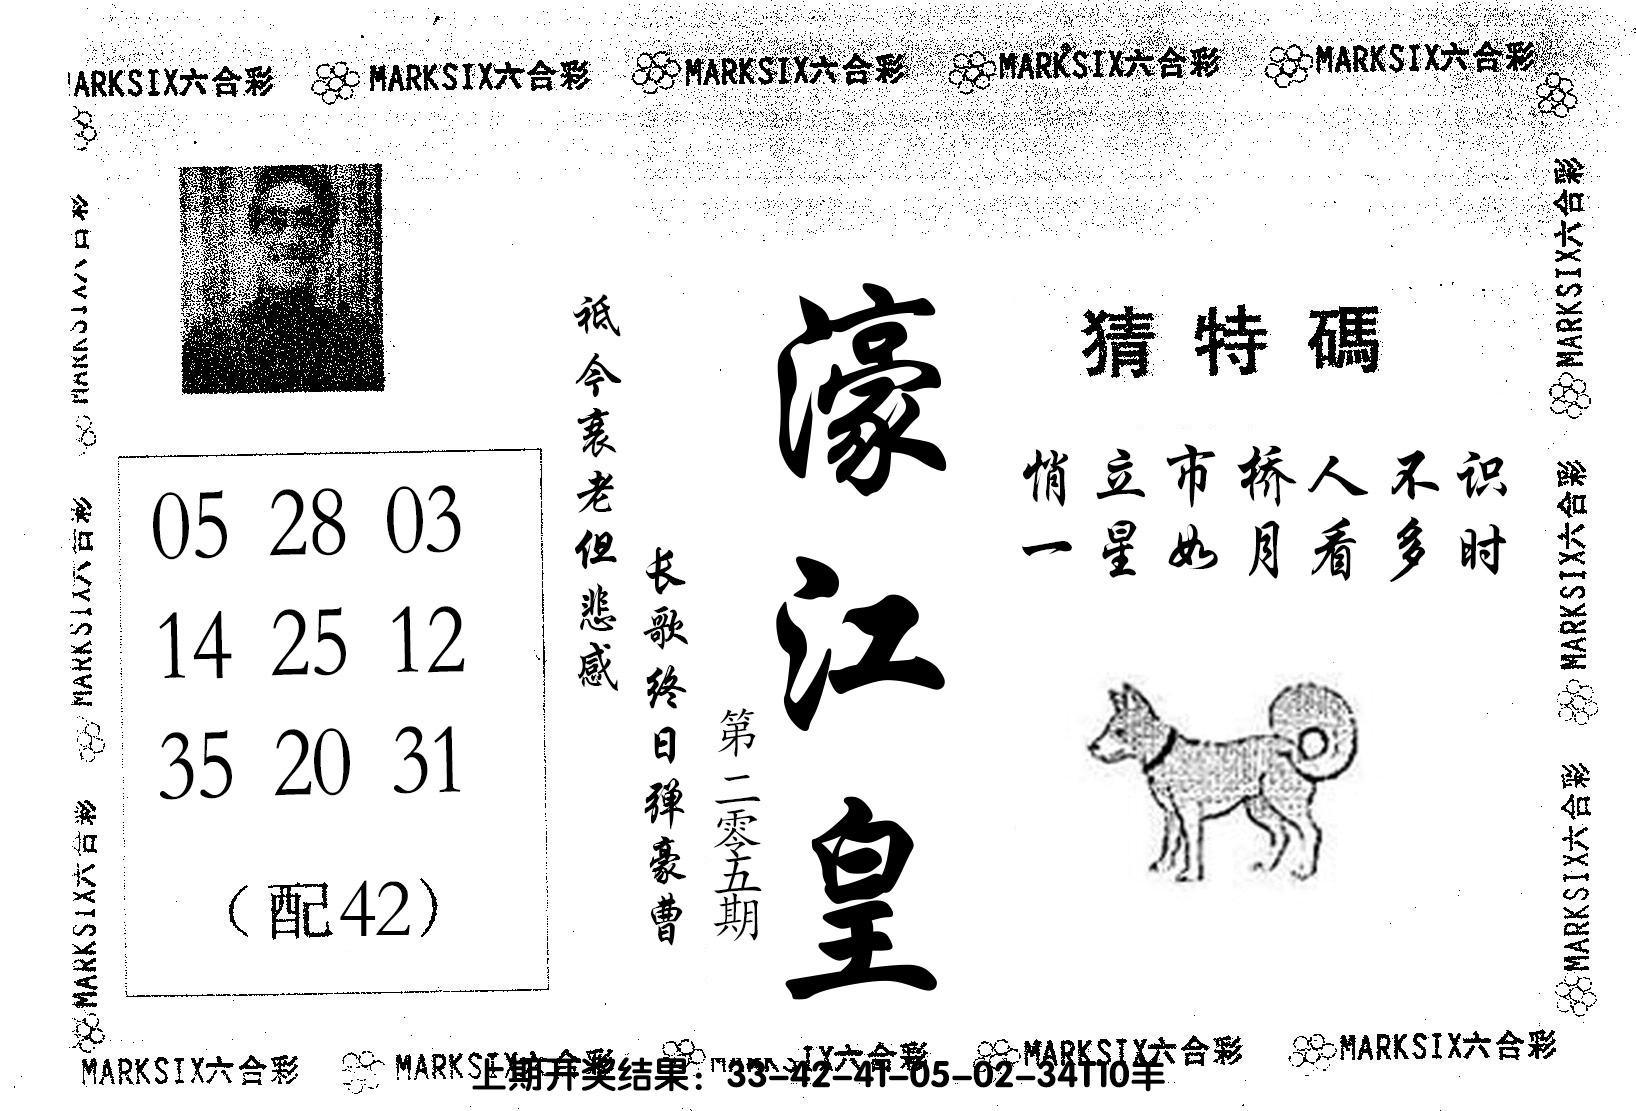 MARKSIX六合彩 MARKSIX六合彩 MARKSIX六合彩 MARKSIX六合彩 MARKSIX六合彩
MARKSIX六合彩
MARKSIX六合彩
MARKSIX六合彩
MARKSIX六合彩
MARKSIX六合彩
MARKSIX六合彩
猜特碼
悄立市桥人不识
一星如月看多时
濠江皇
第二零五期
长歌终日弹豪曹
祗今衰老但悲感
05 28 03
14 25 12
35 20 31
（配42）
MARKSIX六合彩 MARKSIX六合彩 MARKSIX六合彩 MARKSIX六合彩 MARKSIX六合彩
上期开奖结果：33-42-41-05-02-34T10羊